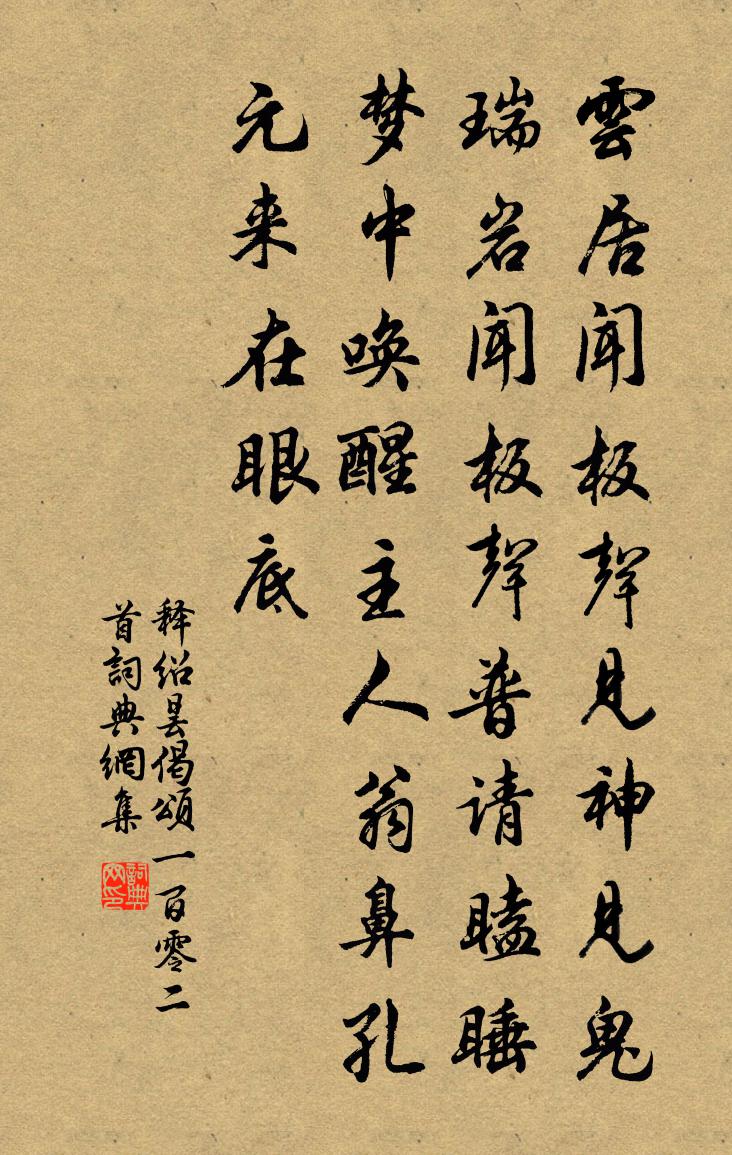 雲居闻板聲見神見鬼
瑞岩闻板聲普请瞌睡
梦中唤醒主人翁鼻孔
元来在眼底
释绍昙偈頌一百零二
首詞典網集
詞典网印